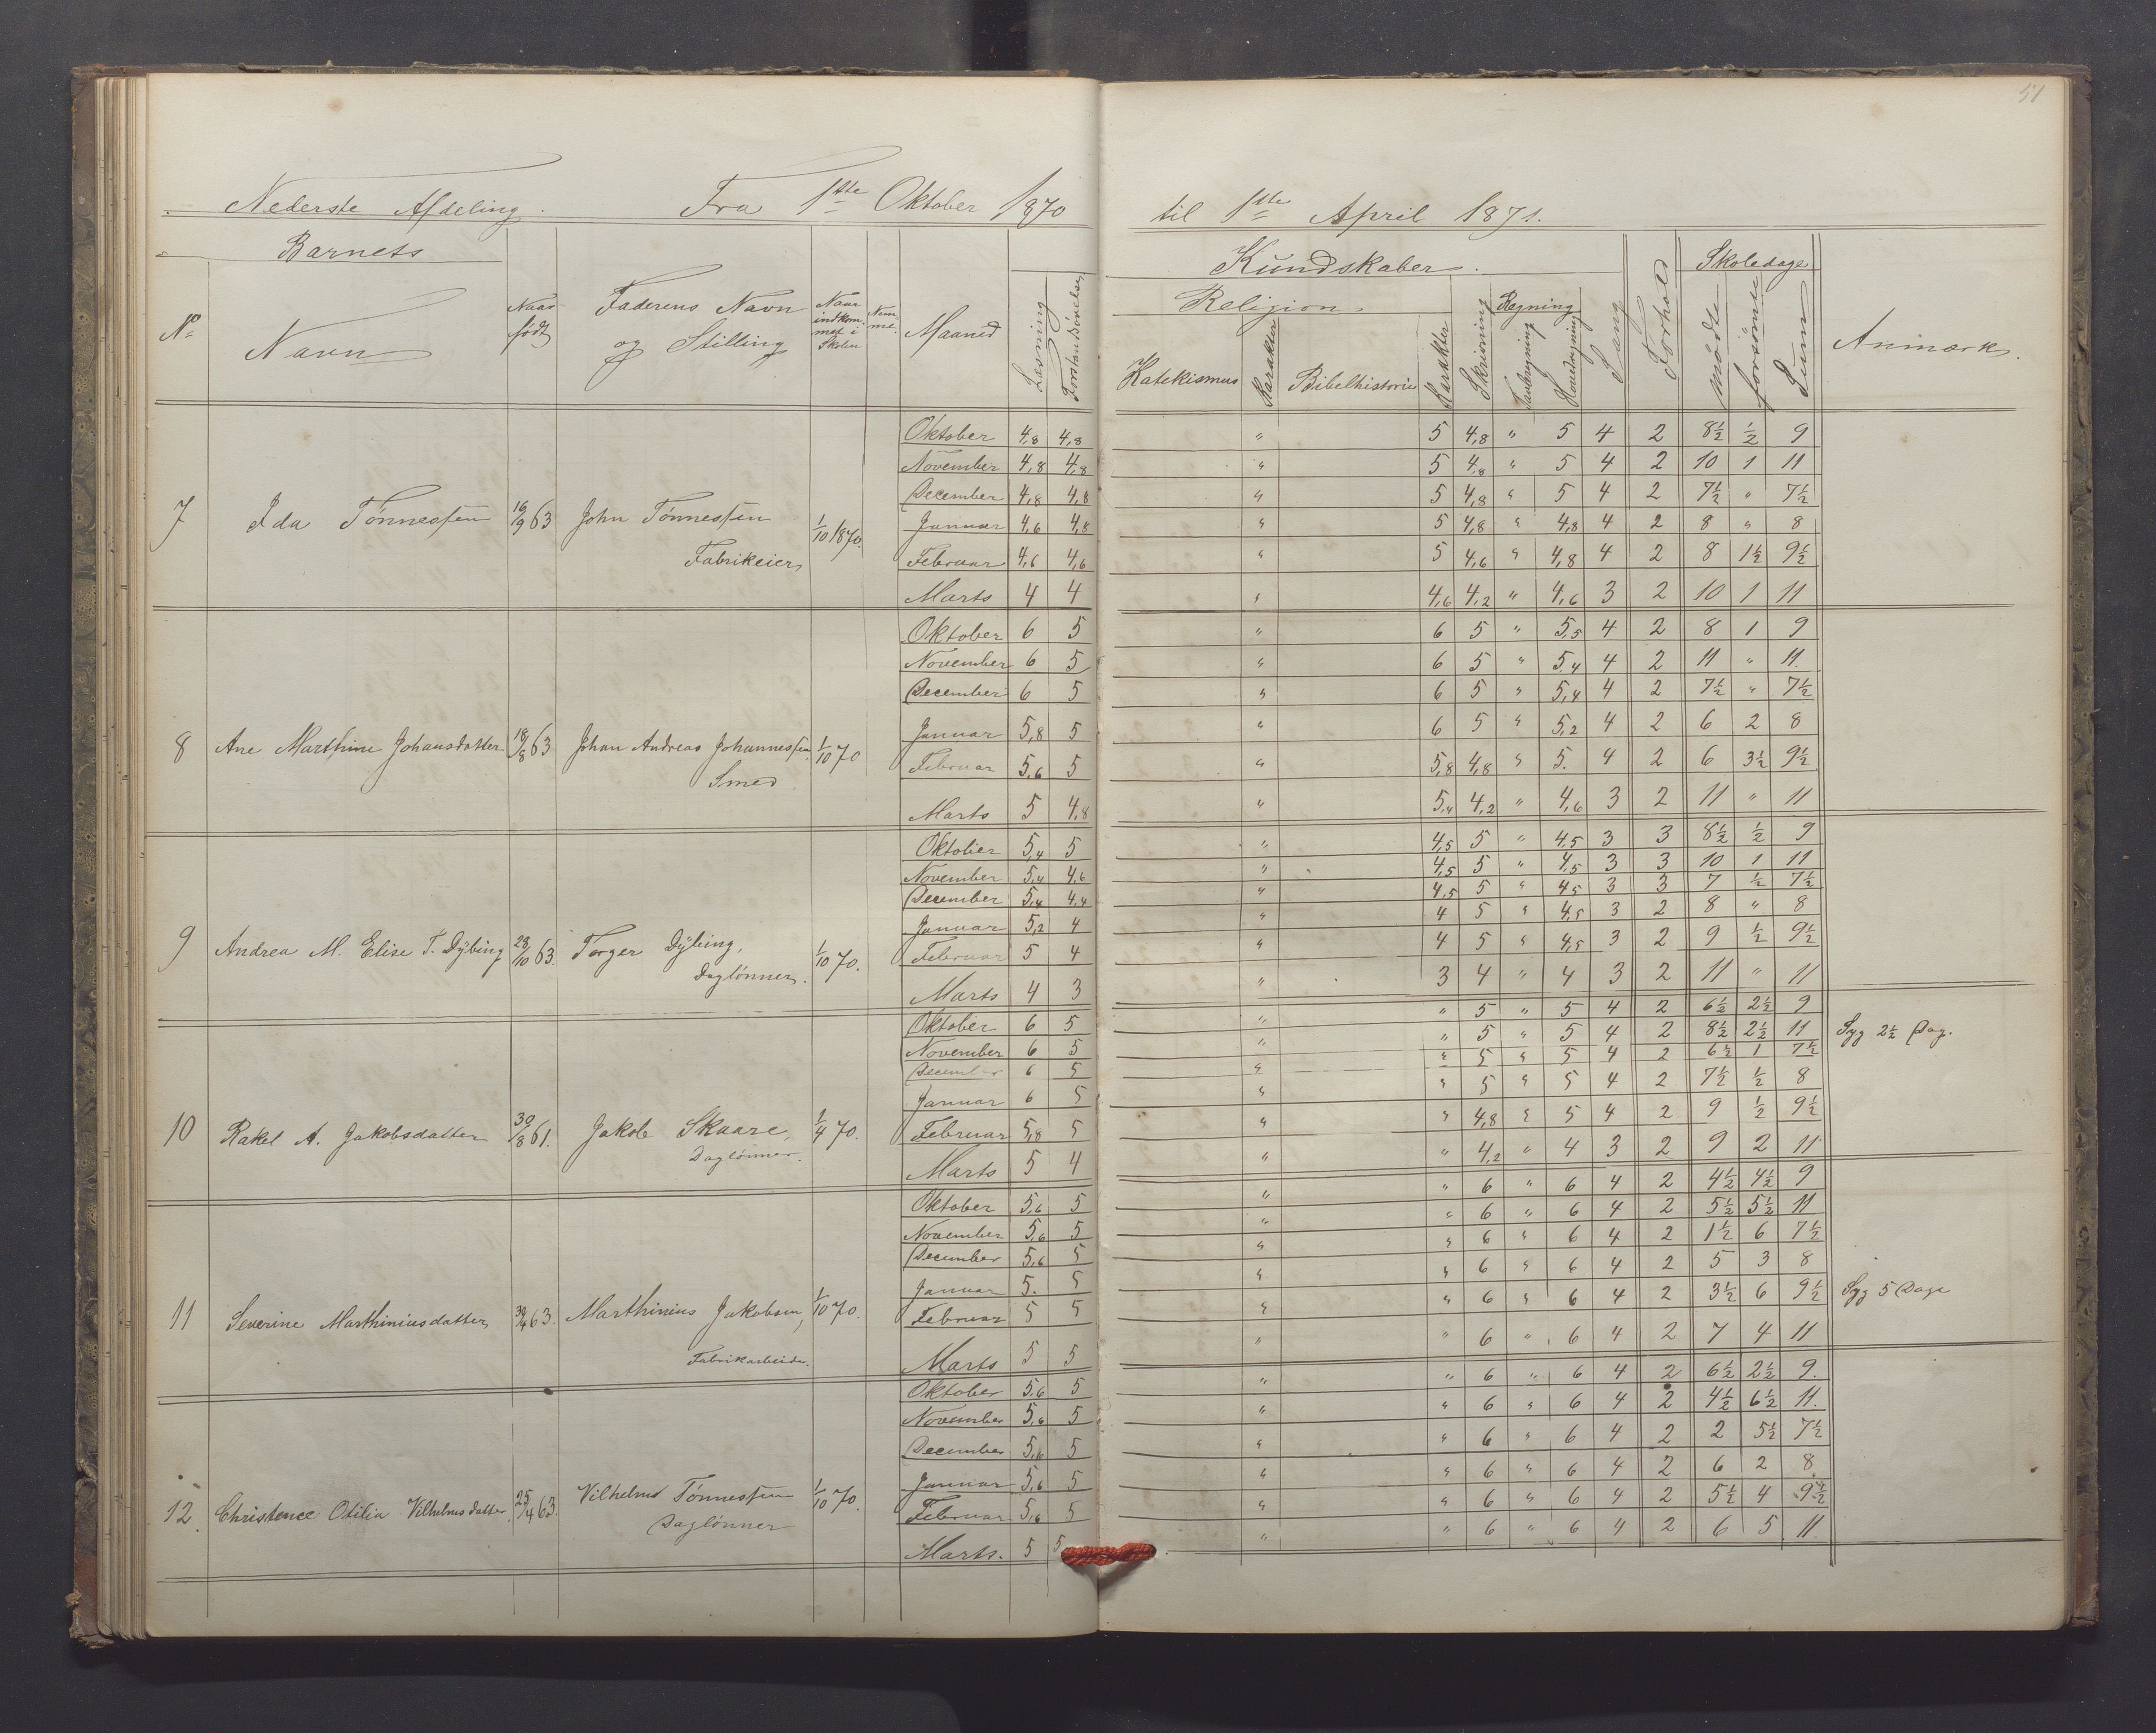 51
Nederste Afdeling. Fra 1ste Oktober 1870 til 1ste April 1871.
Barnets Kundskaber. Skoledage
No Navn Naar født Faderens Navn og Stilling Naar indkommet i Skolen Nemme. Maaned Læsning Forstandsøvelse Religion. Katekismus Karakter Bibelhistorie Karakter Skrivning Regning Tavleregning Hovedregning Sang Forhold mødte forsømte Sum Anmærk.
7 Ida Tønnessen 16/9 63 John Tønnessen Fabrikeier 1/10 1870.
Oktober 4,8 4,8 " 5 4,8 " 5 4 2 8½ ½ 9
November 4,8 4,8 " 5 4,8 " 5 4 2 10 1 11
December 4,8 4,8 " 5 4,8 " 5 4 2 7½ " 7½
Januar 4,6 4,8 " 5 4,8 " 4,8 4 2 8 " 8
Februar 4,6 4,6 " 5 4,6 " 4,8 4 2 8 1½ 9½
Marts 4 4 " 4,6 4,2 " 4,6 3 2 10 1 11
8 Ane Marthine Johansdatter 18/8 63 Johan Andreas Johannessen Smed 1/10 70
Oktober 6 5 " 6 5 " 5,5 4 2 8 1 9
November 6 5 " 6 5 " 5,4 4 2 11 " 11.
December 6 5 " 6 5 " 5,4 4 2 7½ " 7½
Januar 5,8 5 " 6 5 " 5,2 4 2 6 2 8
Februar 5,6 5 " 5,8 4,8 " 5. 4 2 6 3½ 9½
Marts 5 4,8 " 5,4 4,2 " 4,6 3 2 11 " 11
9 Andrea M. Elise T. Dÿbing 28/10 63. Torger Dÿbing, Daglønner. 1/10 70.
Oktober 5,4 5 " 4,5 5 " 4,5 3 3 8½ ½ 9
November 5,4 4,6 " 4,5 5 " 4,5 3 3 10 1 11
December 5,4 4,4 " 4,5 5 " 4,5 3 3 7 ½ 7½
Januar 5,2 4 " 4 5 " 4,5 3 2 8 " 8
Februar 5 4 " 4 5 " 4,5 3 2 9 ½ 9½
Marts 4 3 " 3 4 " 4 3 2 11 " 11
10 Rakel A. Jakobsdatter 30/8 61. Jakob Skaare, Daglønner. 1/4 70.
Oktober 6 5 " " 5 " 5 4 2 6½ 2½ 9
November 6 5 " " 5 " 5 4 2 8½ 2½ 11 Syg 2½ Dag.
December 6 5 " " 5 " 5 4 2 6½ 1 7½
Januar 6 5 " " 5 " 5 4 2 7½ ½ 8
Februar 5,8 5 " " 4,8 " 5 4 2 9 ½ 9½
Marts 5 4 " " 4,2 " 4 3 2 9 2 11
11 Severine Marthiniusdatter 63. Marthinius Jakobsen, Fabrikarbeider. 1/10 70.
Oktober 5,6 5 " " 6 " 6 4 2 4½ 4½ 9
November 5,6 5 " " 6 " 6 4 2 5½ 5½ 11
December 5,6 5 " " 6 " 6 4 2 1½ 6 7½
Januar 5. 5 " " 6 " 6 4 2 5 3 8
Februar 5 5 " " 6 " 6 4 2 3½ 6 9½ Syg 5 Dage
Marts 5 5 " " 6 " 6 4 2 7 4 11
12. Christence Otilia Vilhelmsdatter 25/4 63. Vilhelm Tønnessen Daglønner 1/10 70.
Oktober 5,6 5 " " 6 " 6 4 2 6½ 2½ 9.
November 5,6 5 " " 6 " 6 4 2 4½ 6½ 11.
December 5,6 5 " " 6 " 6 4 2 2 5½ 7½
Januar 5,6 5 " " 6 " 6 4 2 6 2 8.
Februar 5,6 5 " " 6 " 6 4 2 5½ 4 9½
Marts. 5 5 " " 6 " 6 4 2 6 5 11.